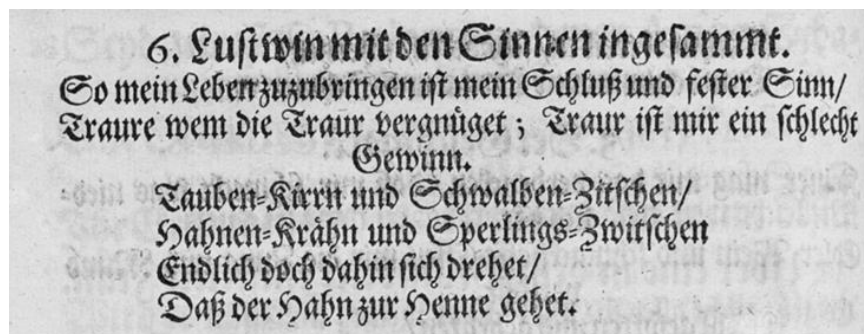 6. Lustwin mit den Sinnen ingesammt.
So mein Leben zuzubringen ist mein Schluß und fester Sinn/
Traure wem die Traur vergnüget; Traur ist mir ein schlecht
Gewinn.
Tauben-Kirrn und Schwalben-Zitschen/
Hahnen-Krähn und Sperlings-Zwitschen
Endlich doch dahin sich drehet/
Daß der Hahn zur Henne gehet.